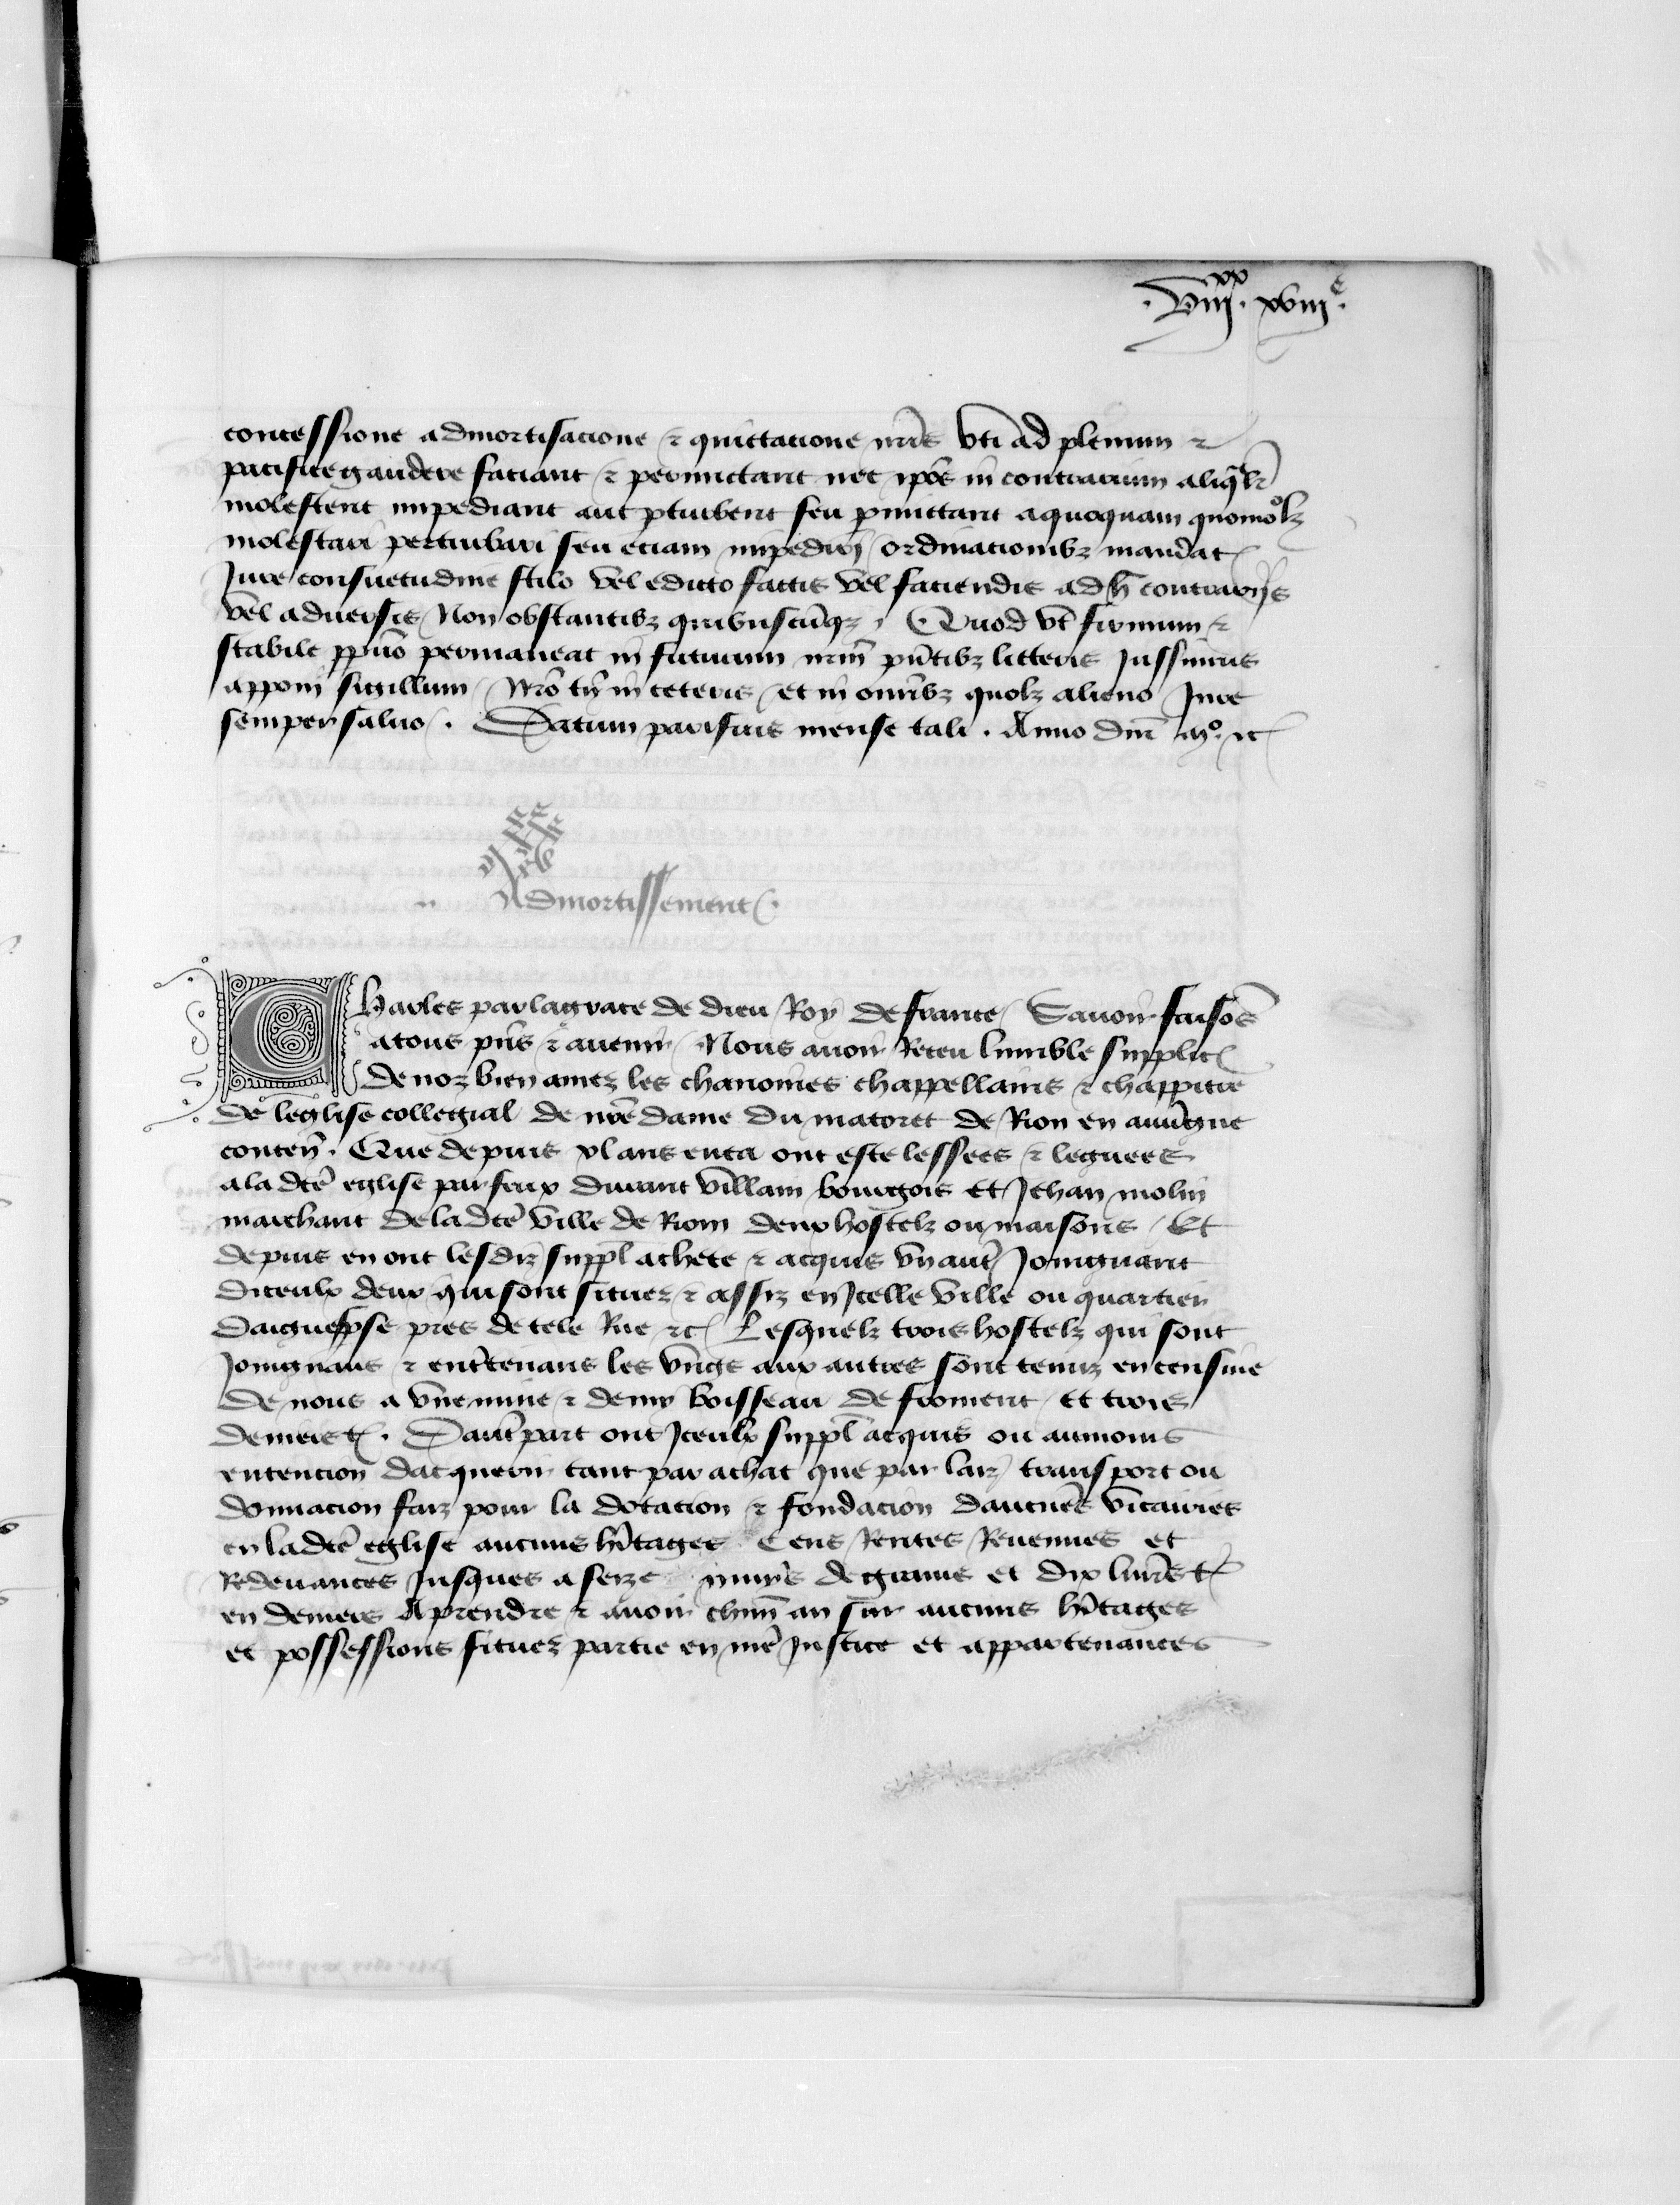 .viiixx. xviiie.
concessione admortisacione & quittacione nr̃is vti ad plenum &
pacifice gaudere faciant & permictant nec ip̃os in contrarium aliqͣlr̃
molestent impediant aut pturbent seu pmittant aquoquam quomolꝫ
molestari perturbari seu etiam impediri ordinacionibꝫ mandat
Jure consuetudine stilo vel edicto factis vel faciendis ad h̃ contrarijs
vel aduersis Non obstantibꝫ quibuscũqꝫ. Quod vt firmum &
stabile ppetuo permaneat in futurum nr̃m pñtibꝫ litteris Jussimus
apponi sigillum Nr̃o tñ in ceteris et in omĩbꝫ quolꝫ alieno Jure
semper saluo. Datum parisius mense tali. Anno dñi mo. &c
Admortissement.
Charles par la grace de dieu Roy de france Sauoir faisõs
atous pñs & auenir Nous auoir Receu lumble supplic
de noz bien amez les chanoines chappellains & chappitre
de leglise collegial de nr̃e dame du matoret de Rion en auũgne
conteñ. Que depuis xl ans enca ont este lessees & leguees
a la dcẽ eglise par feux durant villam bourgois et Jehan molin
marchant de la dcẽ ville de Riom deux hostelz ou maisons Et
depuis en ont lesdiz suppl̃ achete & acquis vn autr̃ Joingnant
diceulx deux qui sont situez & assiz en Jcelle ville ou quartier
daiguespse pres de tele Rue &c Lesquelz trois hostelz qui sont
Joingnans & entr̃tenans les vngs aux autres sont tenuz en censiue
de nous a vne mine & demy boisseau de froment et trois
deniers t. Dautr̃part ont Jceulx suppl̃ acquis ou aumoins
entencion dacquerir tant par achat que par laiz transport ou
donnacion faiz pour la dotacion & fondacion daucunẽs vicairies
en ladcẽ eglise aucuns hr̃itages Cens Rentes Reuenues et
Redeuances Jusques a seize muys de grains et dix liurẽs t
en deniers Aprendre & auoir chũn an sur aucuns hr̃itages
et possessions situez partie en nr̃e Justice et appartenances